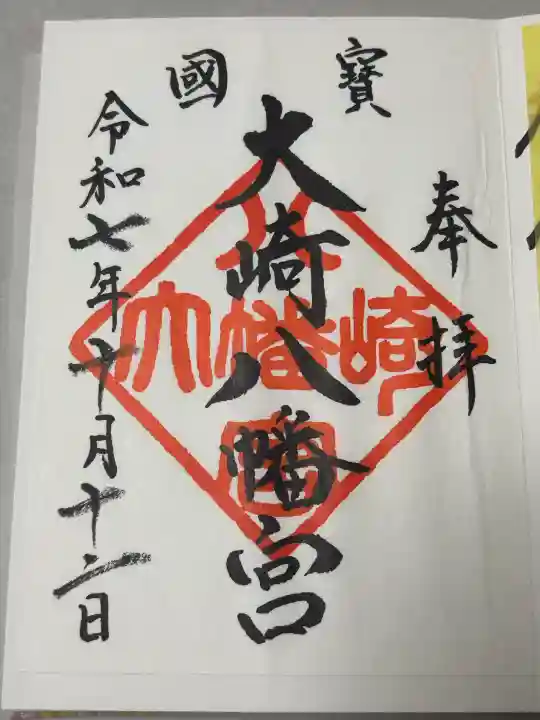 國寳
奉拝
大崎八幡宮
令和七年十月十二日
大崎八幡宮